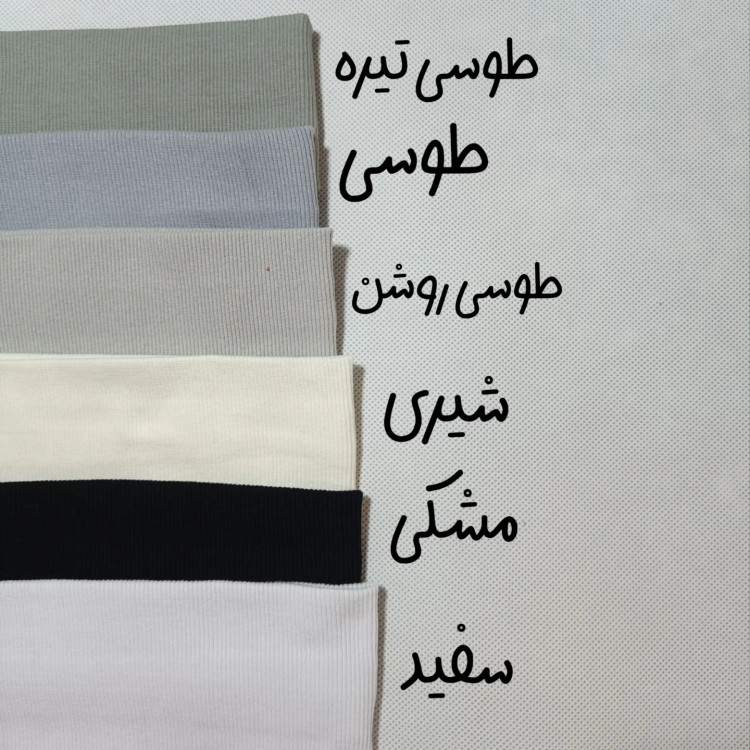 طوسی تیره
طوسی
طوسی روشن
شیری
مشکی
سفید